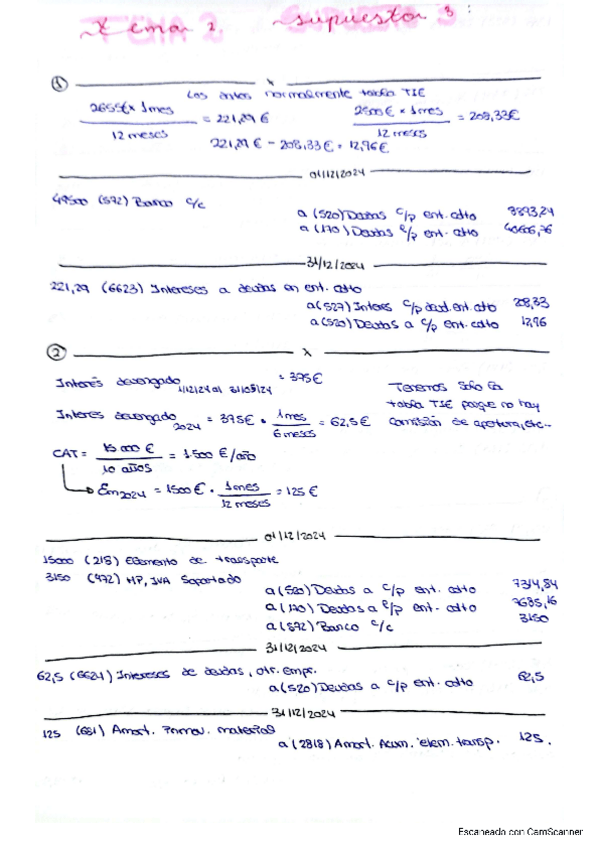 Tema 2. Supuesto 3:
①
x
Los antes normalmente tabla TIE
2655€ x 1mes / 12 meses = 221,29 € 2500€ x 1mes / 12 meses = 208,33€
221,29 € - 208,33€ = 12,96€
01/12/2024
49500 (572) Banco c/c
a (520) Deudas c/p ent. cdto 3893,24
a (170) Deudas e/p ent. cdto
31/12/2024
221,29 (6623) Intereses a deudas en ent. cdto
a (527) Interes c/p deud. ent. cto
a (520) Deudas a c/p ent. cdto 12,96
② x
Interés devengado 1/12/24 al = 375€
Interés devengado 2024 = 375€ · 1mes / 6 meses = 62,5€
Tenemos solo la
tabla TIE porque no hay
comisión de apertura, etc..
CAT = 15000 € / 10 años = 1500 €/año
Em2024 = 1500€ · 1mes / 12 meses = 125 €
01/12/2024
15000 (218) Elemento de transporte
3150 (472) HP, IVA Soportado
a (520) Deudas a c/p ent. cdto 7314,84
a (170) Deudas a e/p ent. cdto 7685,16
a (572) Banco c/c 3150
31/12/2024
62,5 (6624) Intereses de deudas, otr. empr.
a (520) Deudas a c/p ent. cdto 62,5
31/12/2024
125 (681) Amort. Inmov. material
a (2818) Amort. Acum. elem. transp. 125.
Escaneado con CamScanner